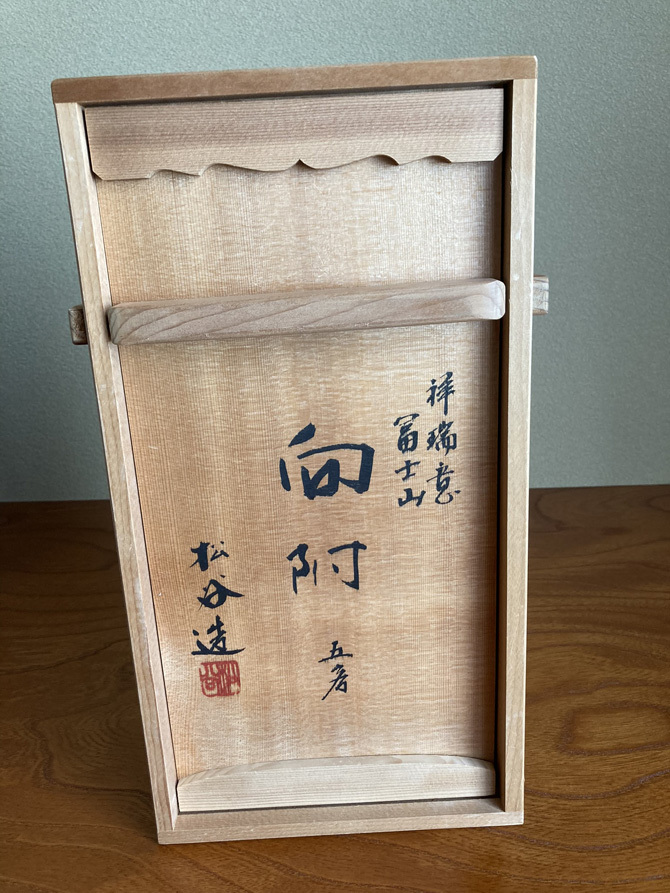 祥瑞意
冨士山
向附
五客
松谷造